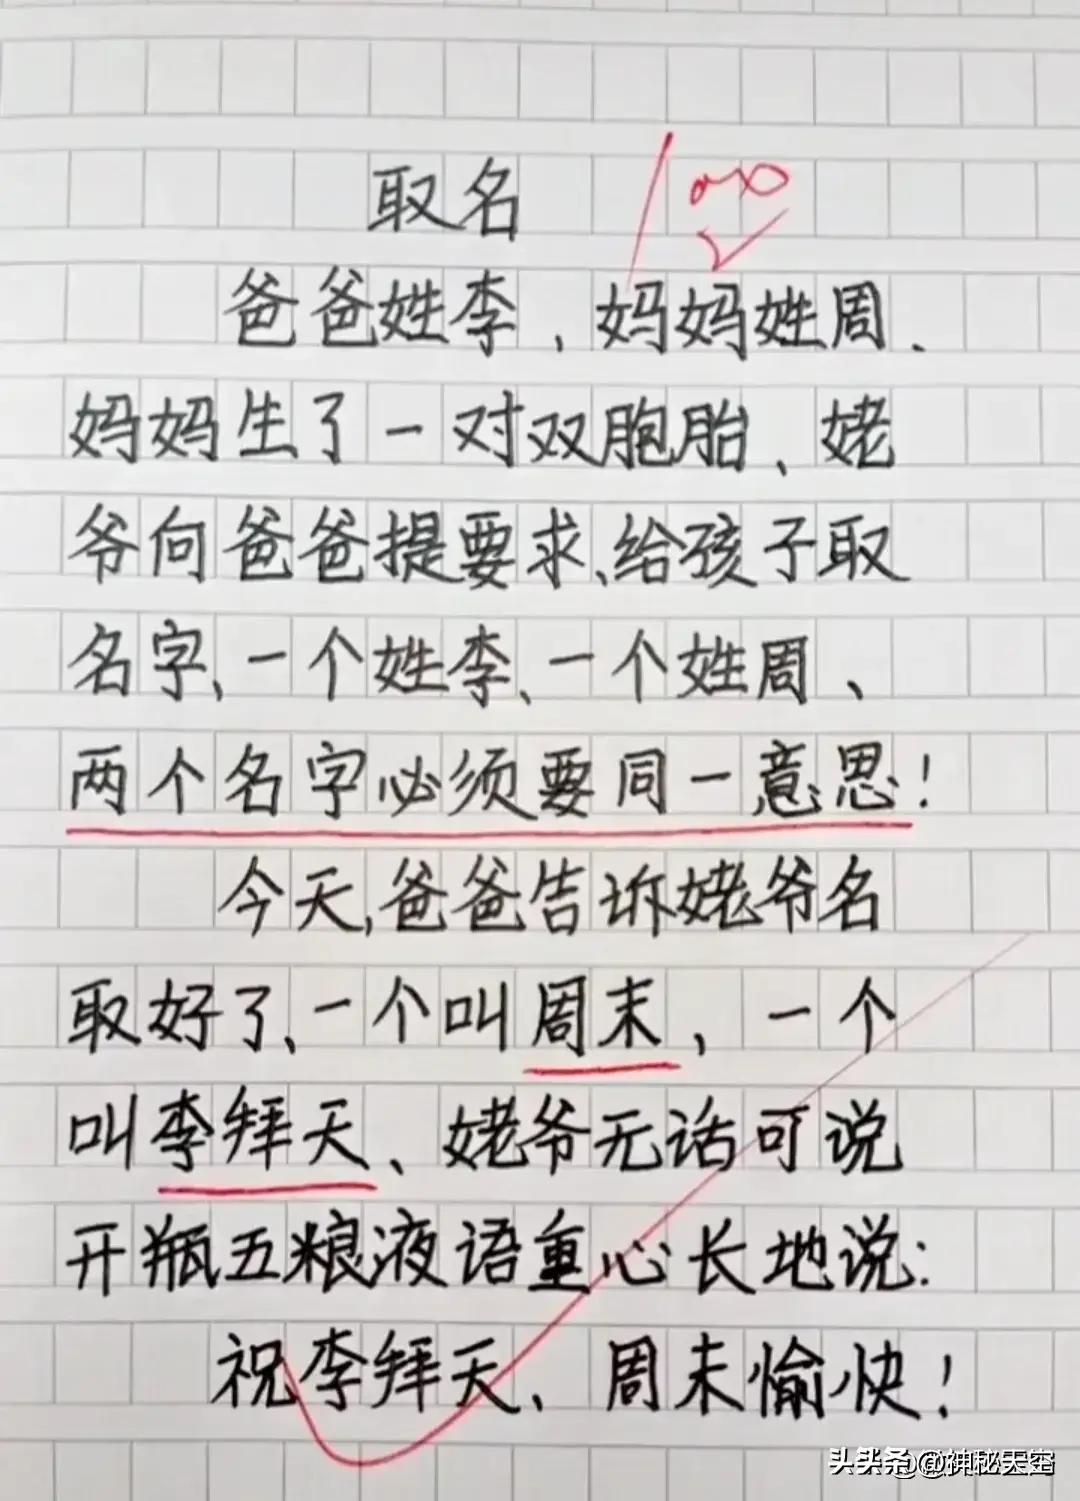 取名
100
爸爸姓李、妈妈姓周、
妈妈生了一对双胞胎、姥
爷向爸爸提要求、给孩子取
名字、一个姓李、一个姓周、
两个名字必须要同一意思！
今天,爸爸告诉姥爷名
取好了、一个叫周末、一个
叫李拜天、姥爷无话可说
开瓶五粮液语重心长地说：
祝李拜天、周末愉快！
头条@神秘天空